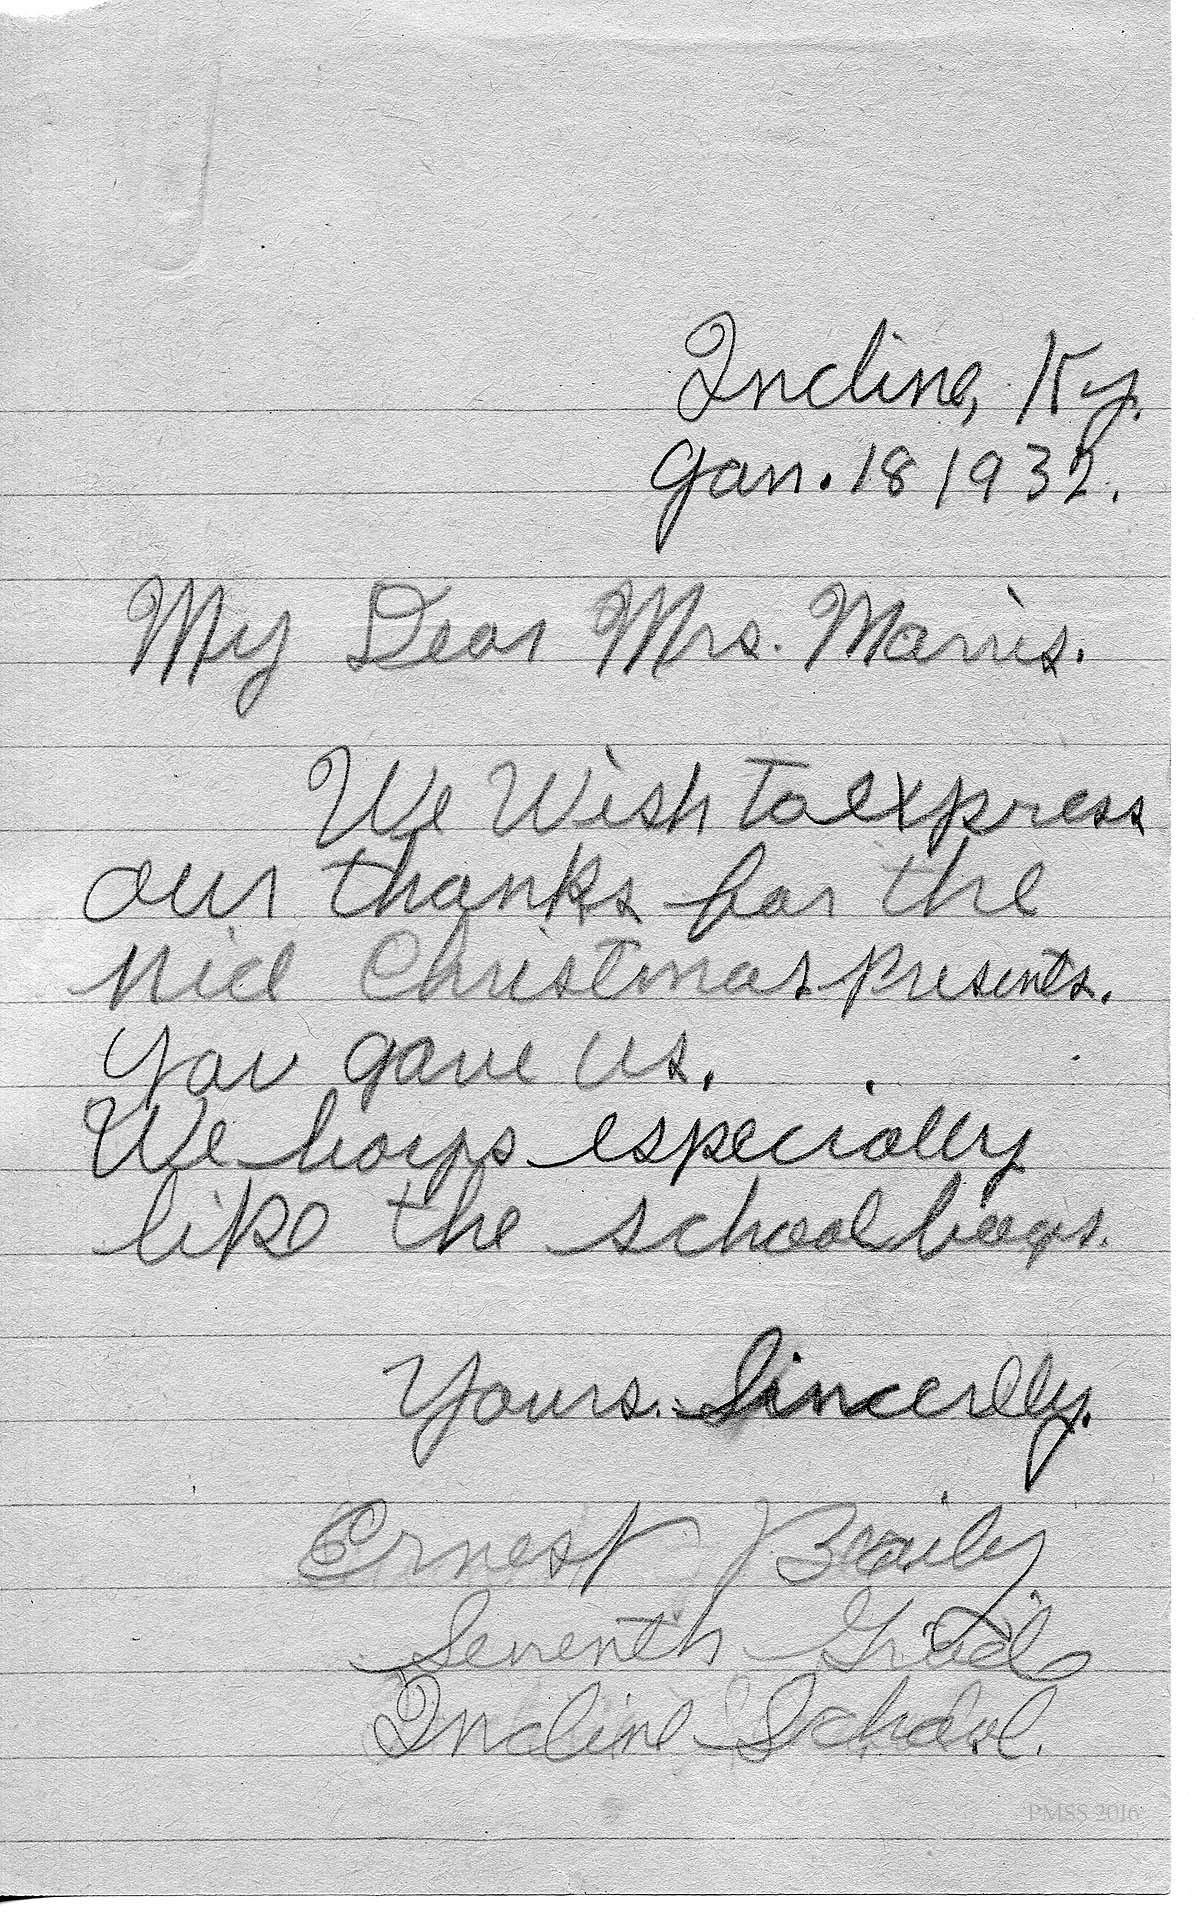 Incline, Ky.
Jan. 18 1932.
My Dear Mrs. Marris.
We Wish To express
our thanks for the
nice Christmas presents.
You gave us.
We boys especially
like the school bags.
Yours. Sincerlly.
Ernest Braily.
Seventh Grade
Incline School.
PMSS 2016